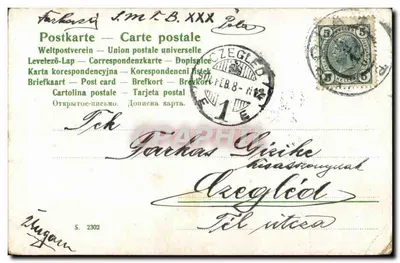 Farkasig S.M.K.B. XXX Pola
Postkarte — Carte postale
Weltpostverein — Union postale universelle
Levelező-Lap — Correspondenzkarte — Dopisnice
Karta korespondencyjna — Korespondenční lístek
Briefkaart — Post card — Brefkort — Brevkort
Cartolina postale — Tarjeta postal
Открытое письмо. Дописна карта.
CZEGLÉD
FEB. 8
1
5 5
Tek
Farkas Gizike
kisasszonynak
Czegléd
Tél utcza
Ungarn
S. 2302